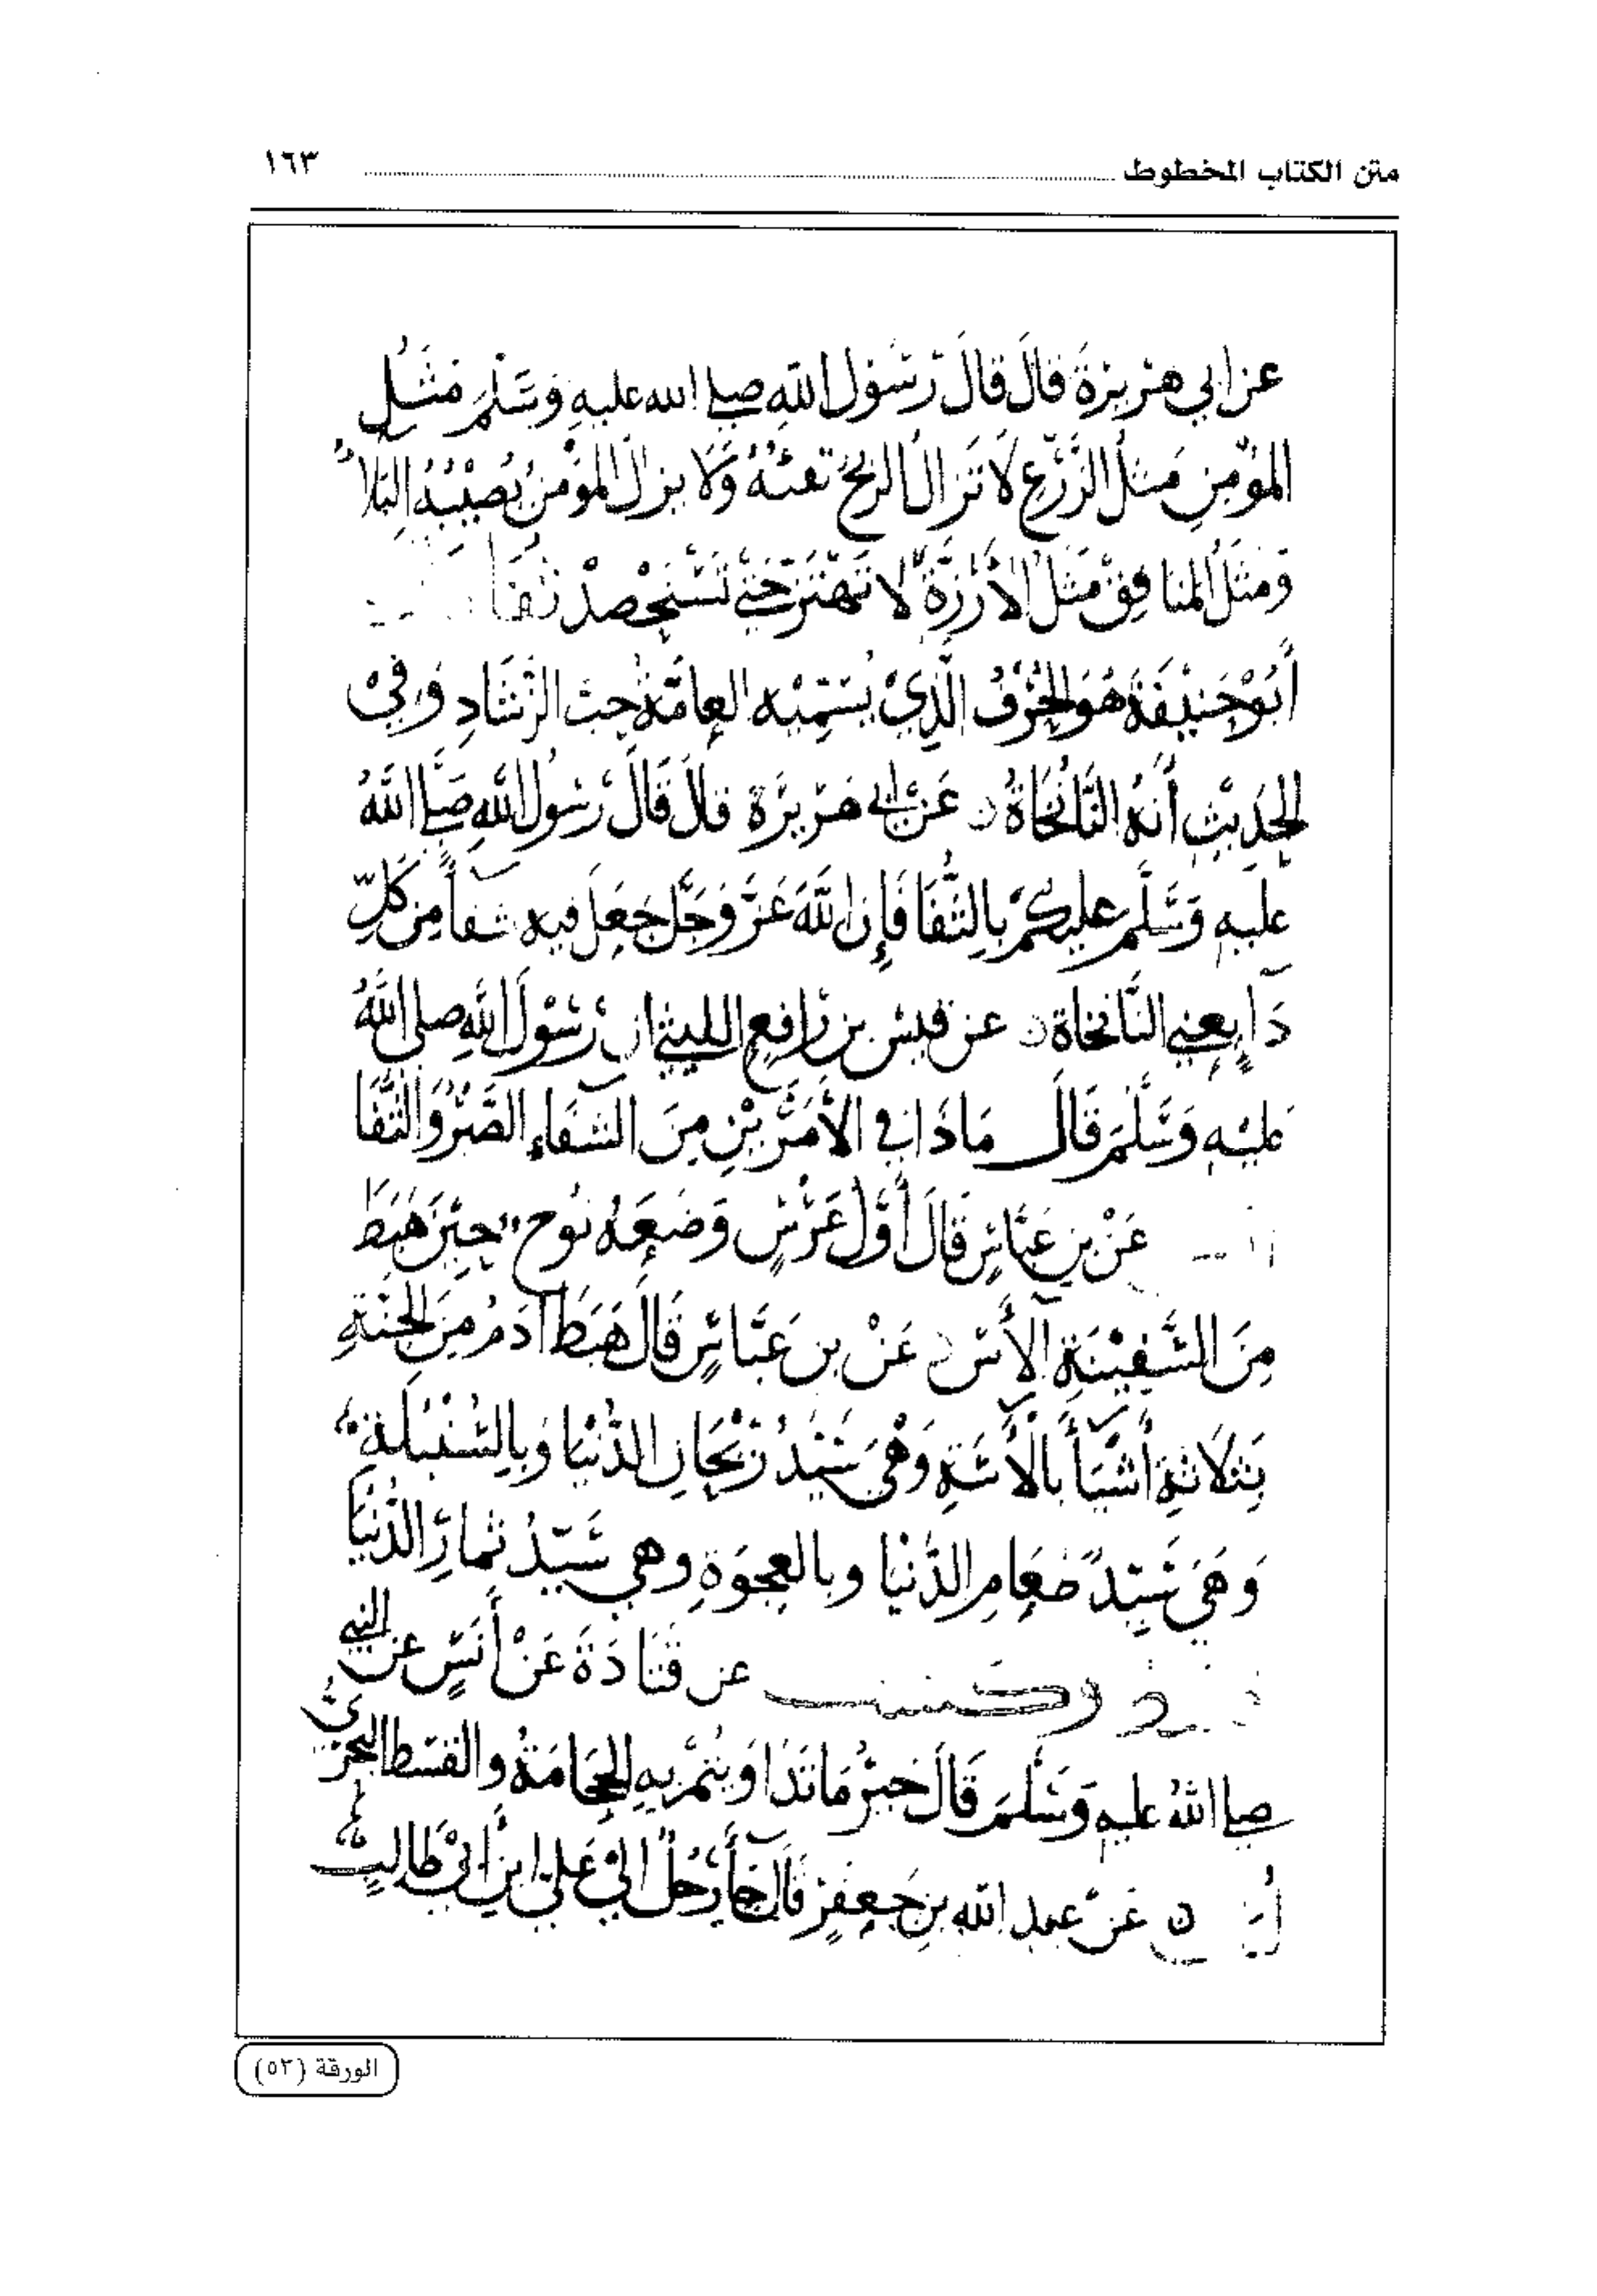 متن الكتاب المخطوط ١٦٣
عن ابي هريرة قال قال رسول الله صلى الله عليه وسلم مثل
المؤمن مثل الزرع لا تزال الريح تفئه ولا يزال المؤمن يصيبه البلاء
ومثل المنافق مثل الأرزة لا تهتز حتى تستحصد ثفا
أبو حنيفة هو الحرف الذي يسميه العامة حب الرشاد وفي
الحديث أنه النانخاة عن ابي هريرة قال قال رسول الله صلى الله
عليه وسلم عليكم بالثفا فإن الله عز وجل جعل فيه شفاً من كل
دآ يعني النانخاة عن قيس بن رافع الليثي ان رسول الله صلى الله
عليه وسلم قال ماذا في الأمرين من الشفاء الصبر والثفا
عن بن عباس قال أول غرس وضعه نوح حين هبط
من السفينة الآس عن بن عباس قال هبط آدم من الجنة
بثلاثة أشيآ بالآسة وهي سيد ريحان الدنيا وبالسنبلة
وهي سيد طعام الدنيا وبالعجوة وهي سيد ثمار الدنيا
عن قتادة عن أنس عن النبي
صلى الله عليه وسلم قال خير ما تداويتم به الحجامة والقسط البحري
عن عبد الله بن جعفر قال جآ رجل الى علي ابن ابي طالب
الورقة (٥٢)